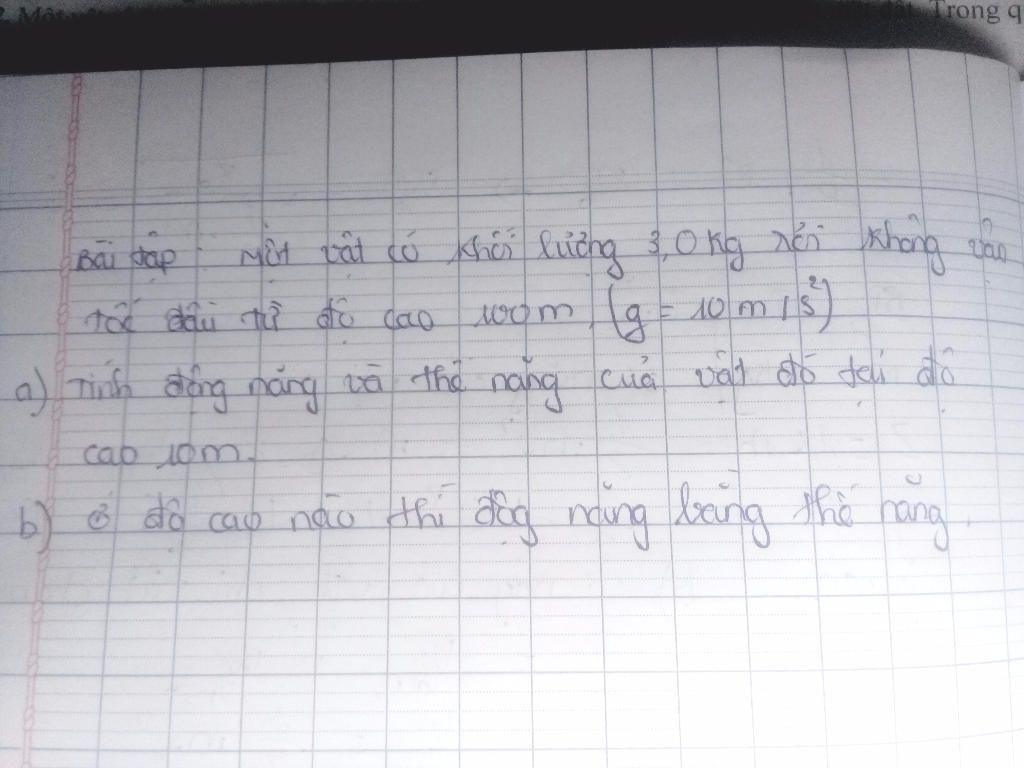 Trong q
Bài tập: Một vật có khối lượng 3,0 kg rơi không vận
tốc đầu từ độ cao 100m (g = 10 m/s²)
a) Tính động năng và thế năng của vật đó tại độ
cao 10m.
b) ở độ cao nào thì độg năng bằng thế năng.